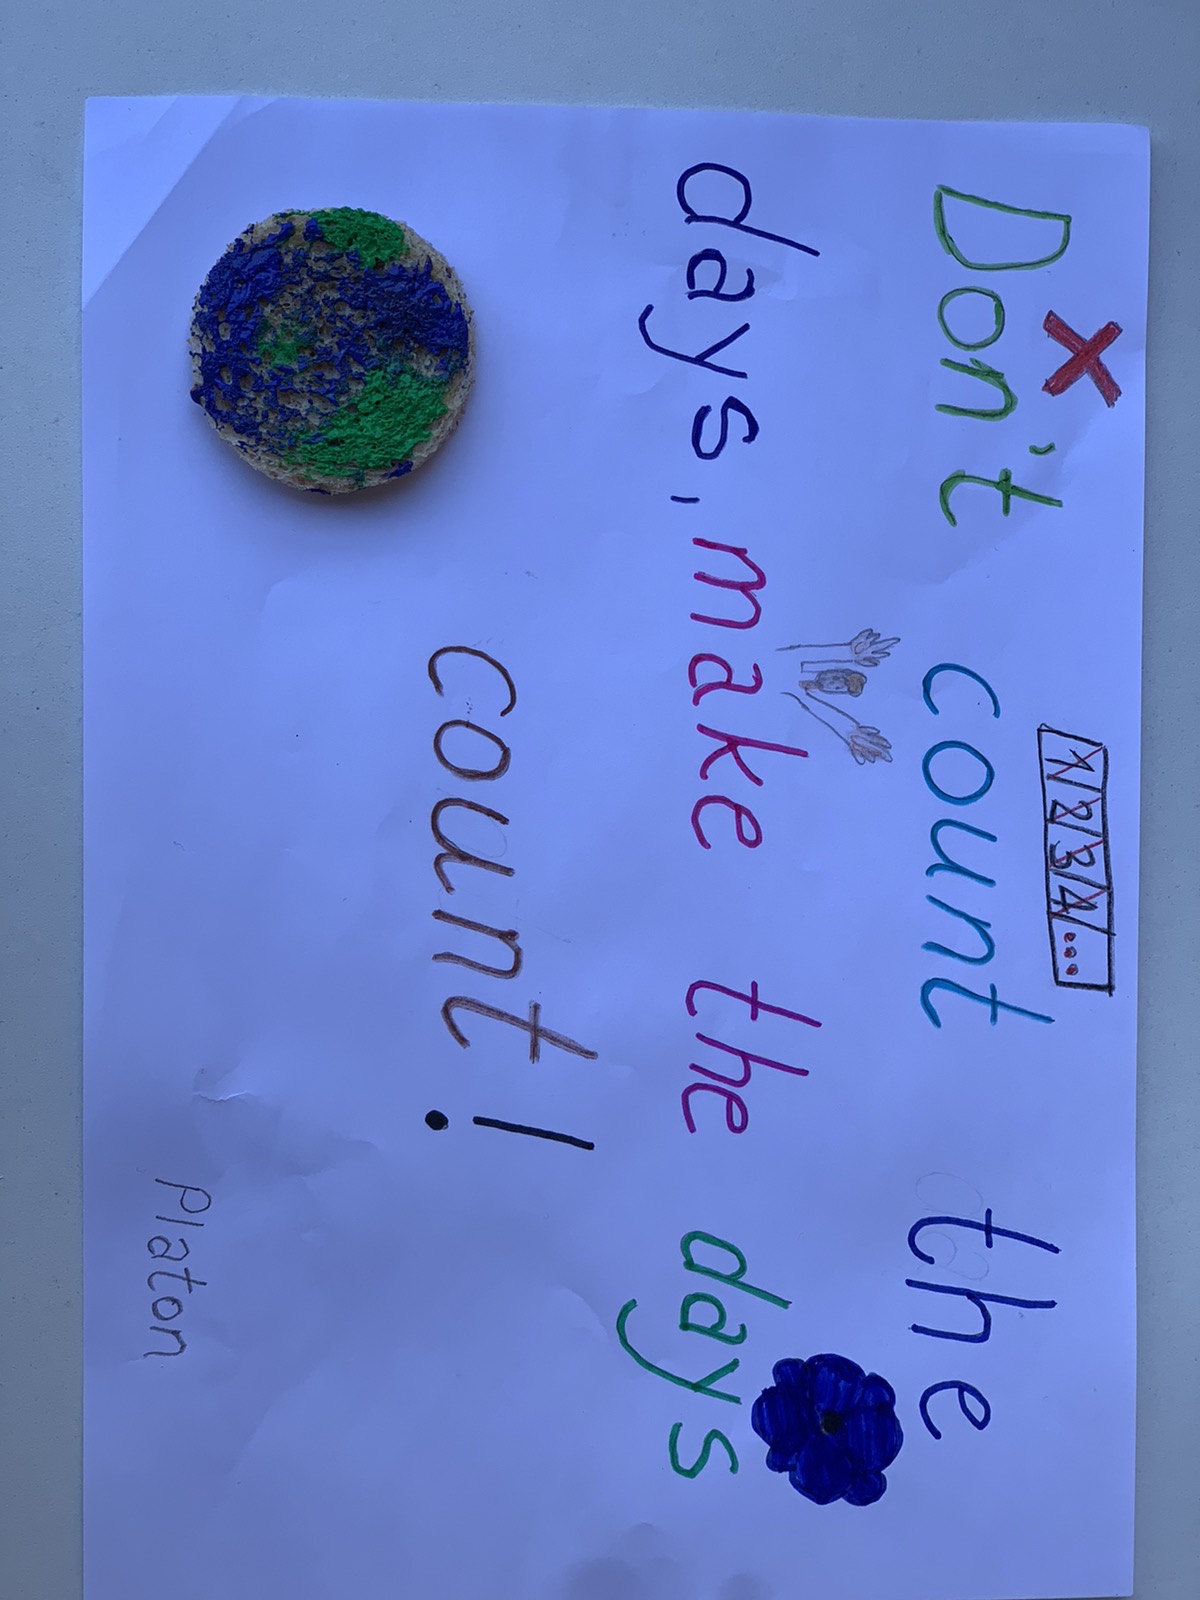 1 2 3 4 ...
Don't count the
days, make the days
count!
Platon